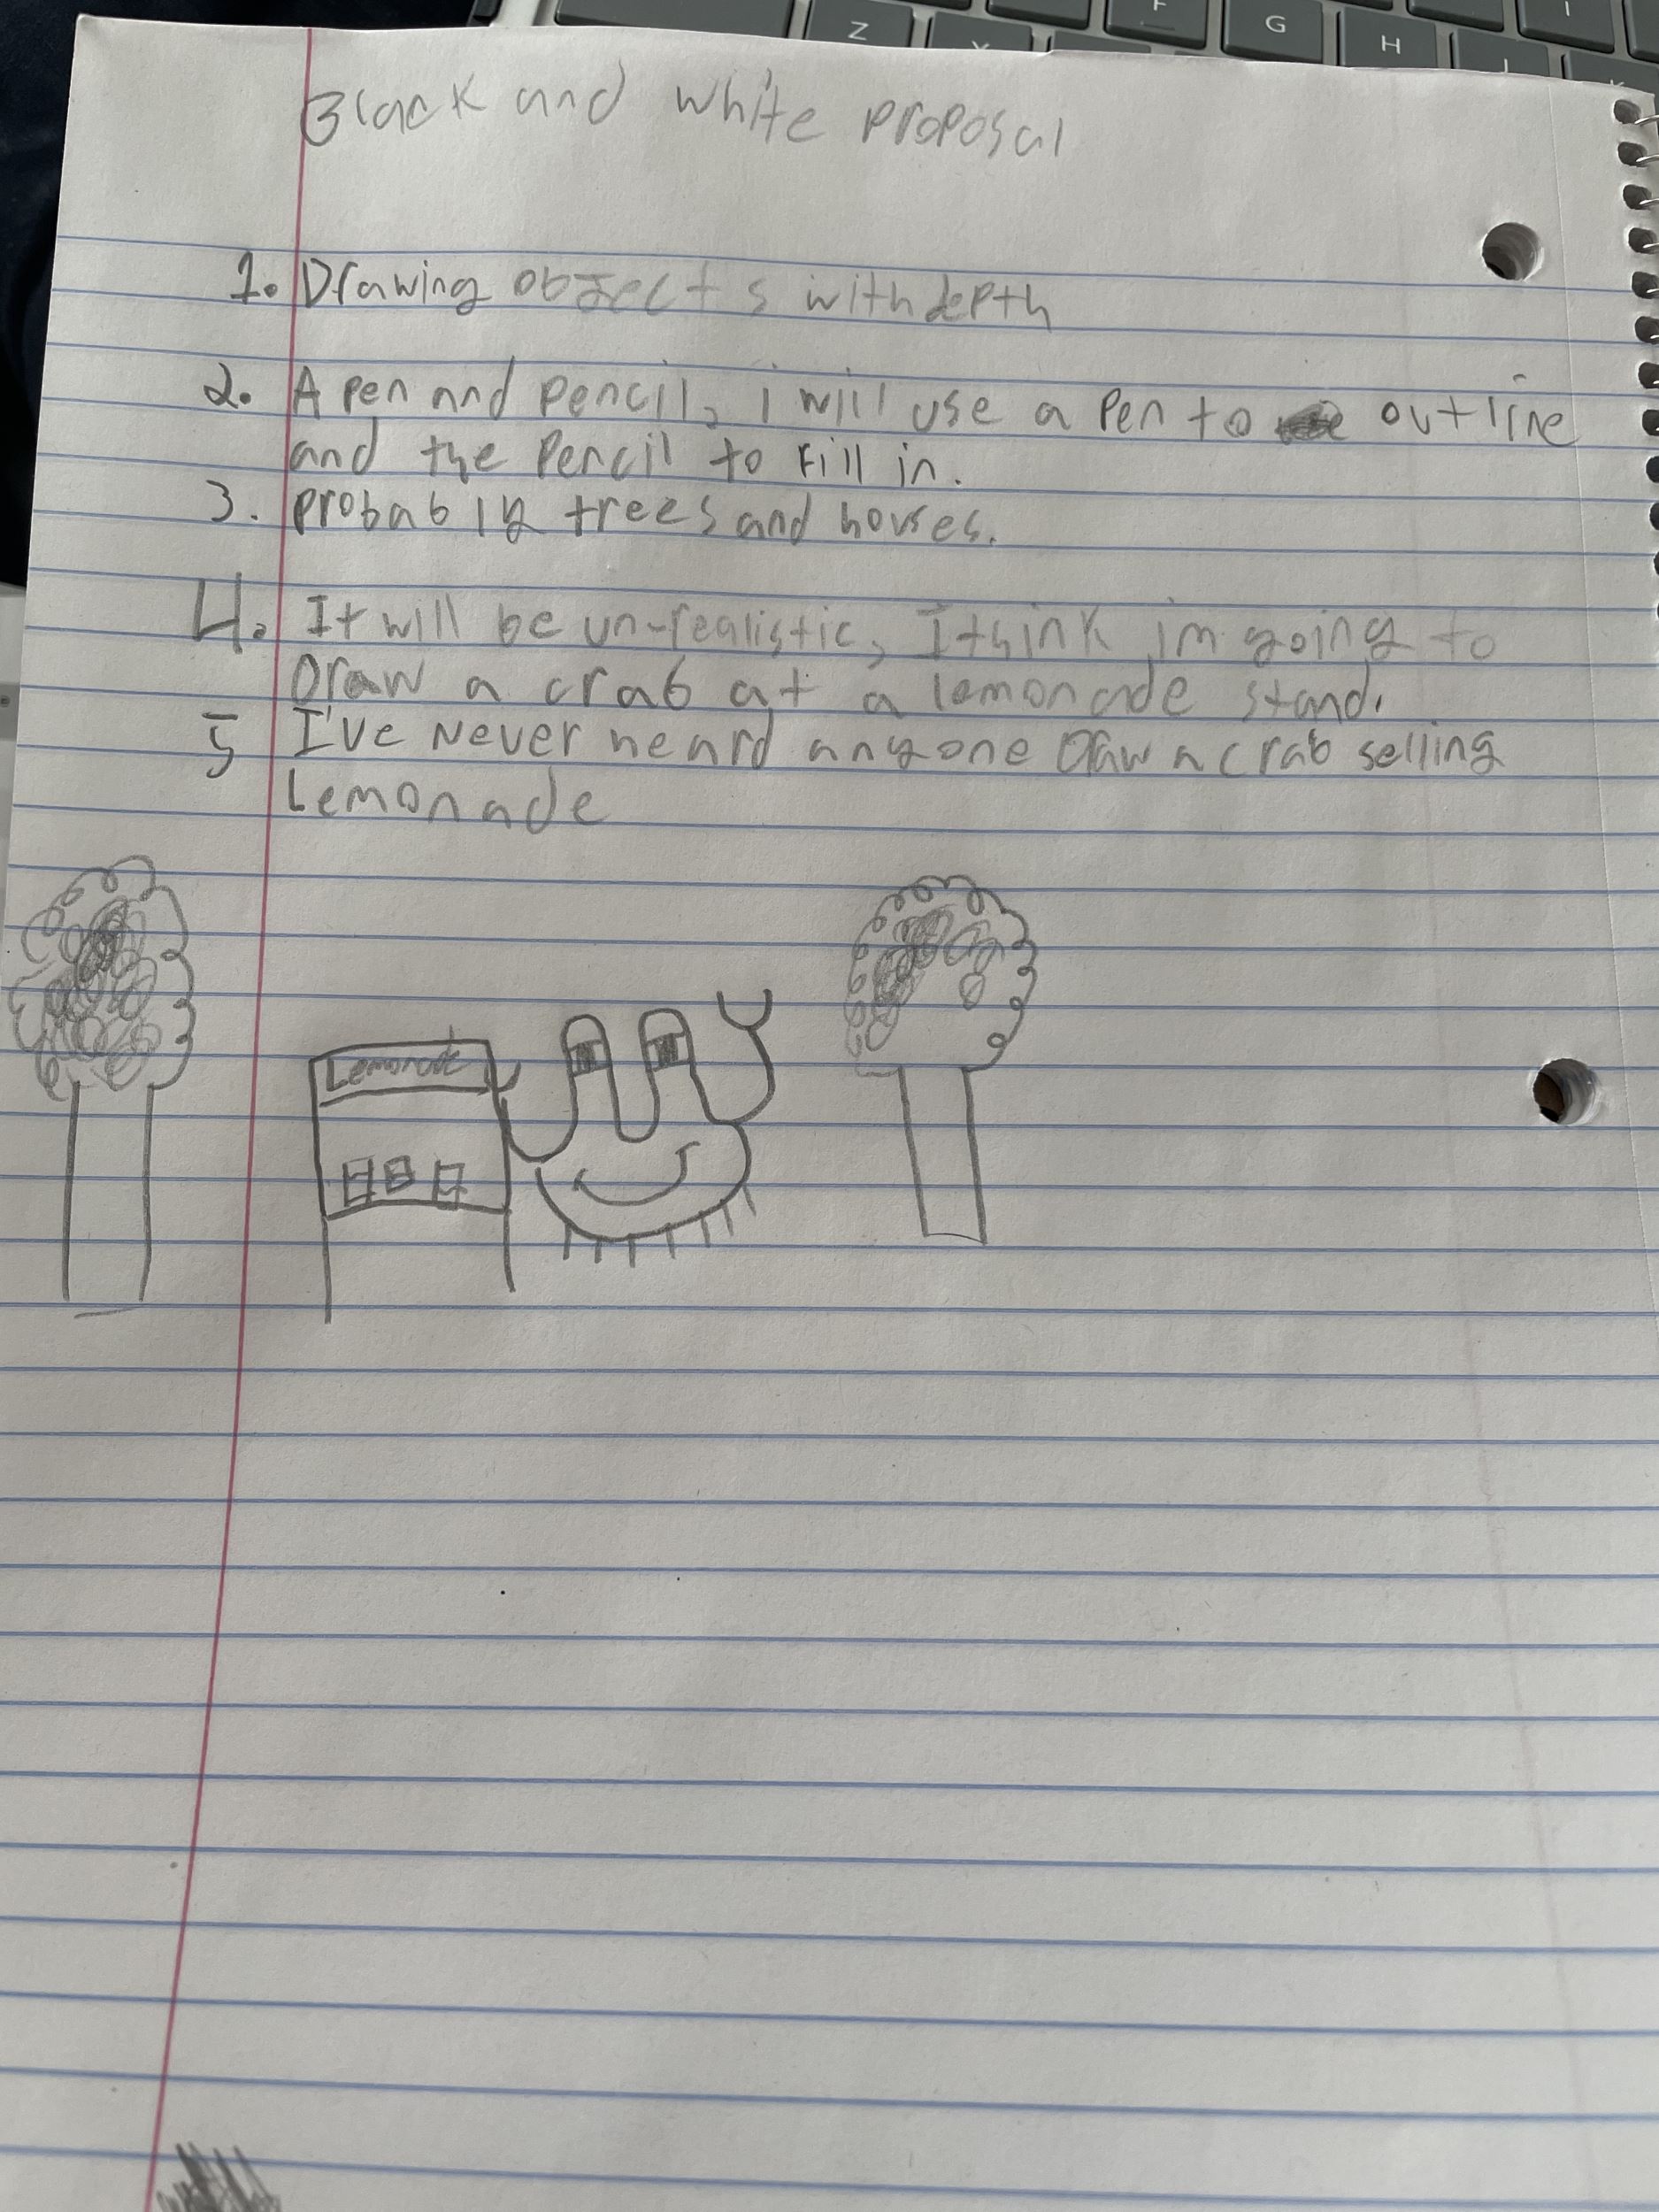 Z F G H I
Black and white proposal
1. Drawing objects with depth
2. A pen and pencil, i will use a pen to outline
and the pencil to fill in.
3. probably trees and houses.
4. It will be un-realistic, I think im going to
Draw a crab at a lemonade stand.
5 I've Never heard anyone Draw a crab selling
Lemonade
Lemonade